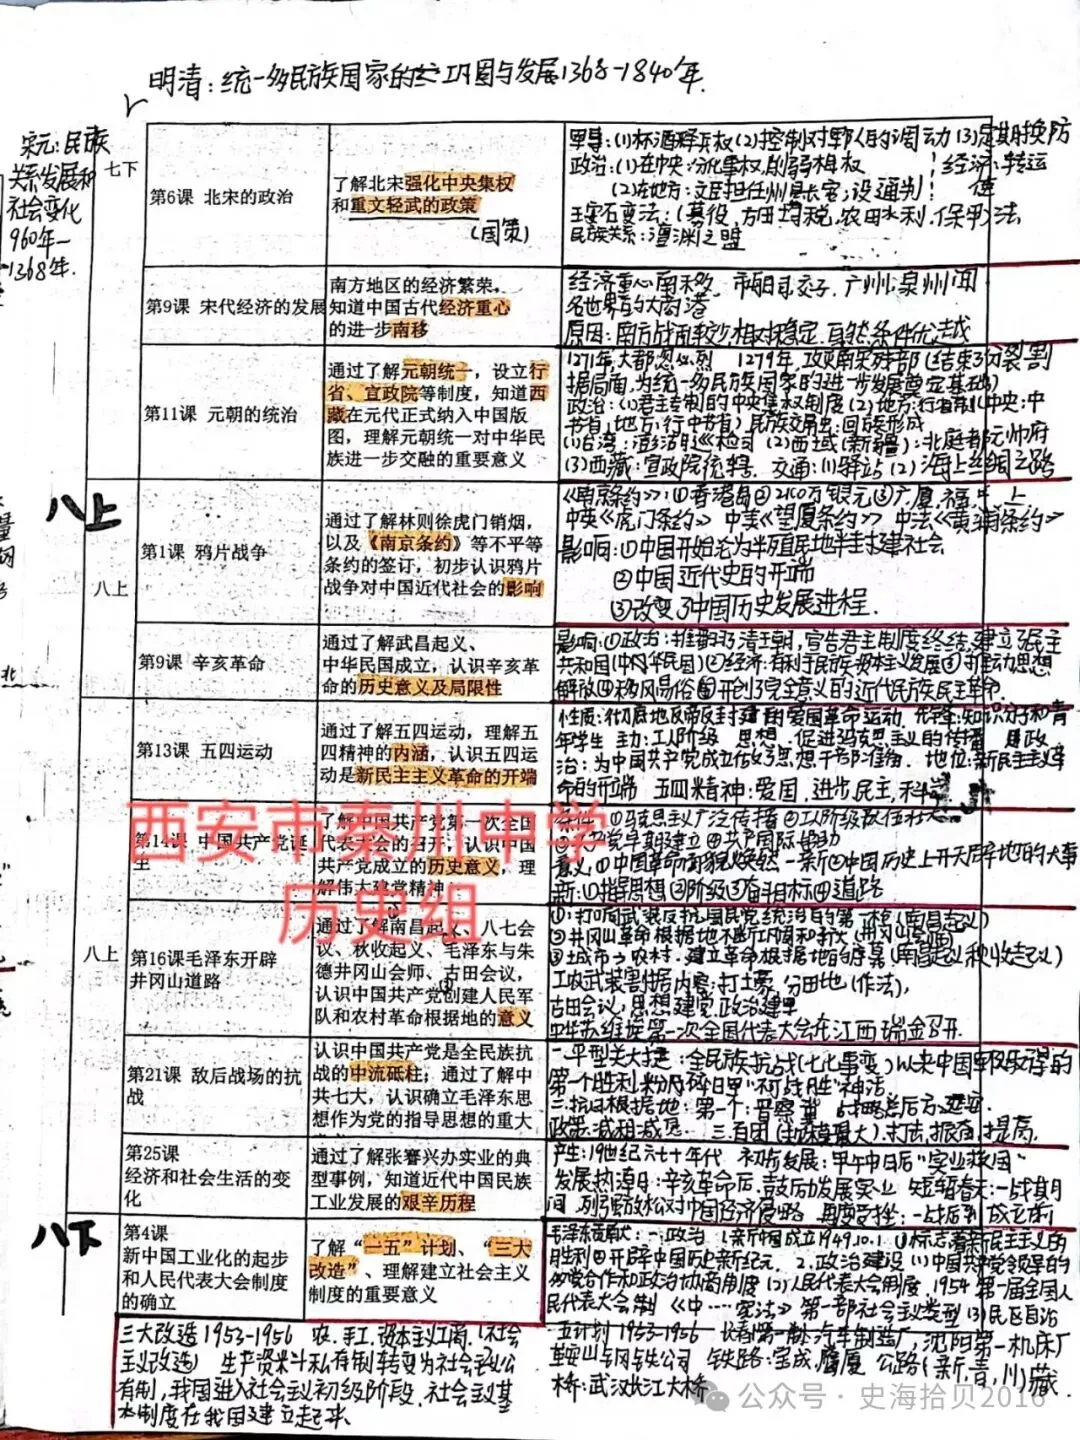 明清：统一多民族国家的巩固与发展1368-1840年.
宋元：民族
关系发展和
社会变化
960年—
1368年.
七下
第6课 北宋的政治
了解北宋强化中央集权
和重文轻武的政策
(国策)
军事：(1)杯酒释兵权(2)控制对
政治：(1)在中央：分化事权,削弱相权
经济：转运
使
(2)在地方：文臣担任州县长官；设通判
王安石变法：(募役、方田均税、农田水利、保甲)法
民族关系：澶渊之盟
第9课 宋代经济的发展
南方地区的经济繁荣。
知道中国古代经济重心
的进一步南移
经济重心南移 交子、广州、泉州闻
名世界的大商港
原因：南方战乱较少,相对稳定,自然条件优越
第11课 元朝的统治
通过了解元朝统一，设立行
省、宣政院等制度，知道西
藏在元代正式纳入中国版
图，理解元朝统一对中华民
族进一步交融的重要意义
1271年,大都忽必烈 1279年,攻灭南宋残部(结束了分裂割
据局面,为统一多民族国家的进一步发展奠定基础)
政治：(1)君主专制的中央集权制度(2)地方：行省制(中央：中
书省；地方：行中书省) 民族交融：回族形成
(1)台湾：澎湖巡检司 (2)西域(新疆)：北庭都元帅府
(3)西藏：宣政院统辖. 交通：(1)驿站(2)海上丝绸之路
八上
八上
第1课 鸦片战争
通过了解林则徐虎门销烟，
以及《南京条约》等不平等
条约的签订，初步认识鸦片
战争对中国近代社会的影响
《南京条约》：①香港岛②2100万银元③广、厦、福、宁、上
中英《虎门条约》 中美《望厦条约》 中法《黄埔条约》
影响：①中国开始沦为半殖民地半封建社会
②中国近代史的开端
③改变了中国历史发展进程.
第9课 辛亥革命
通过了解武昌起义、
中华民国成立，认识辛亥革
命的历史意义及局限性
影响：①政治：推翻了清王朝,宣告君主制度终结,建立了民主
共和国(中华民国)②经济：有利于民族资本主义发展③推动思想
解放④移风易俗⑤开创了完全意义的近代民族民主革命.
第13课 五四运动
通过了解五四运动，理解五
四精神的内涵，认识五四运
动是新民主主义革命的开端
性质：彻底地反帝反封建的爱国革命运动 先锋：知识分子和青
年学生 主力：工人阶级 思想：促进马克思主义的传播 政
治：为中国共产党成立做了思想干部准备. 地位：新民主主义革
命的开端 五四精神：爱国、进步、民主、科学
第14课 中国共产党诞
生
了解中国共产党第一次全国
代表大会的召开，认识中国
共产党成立的历史意义，理
解伟大建党精神
条件：①马克思主义广泛传播②工人阶级队伍壮大
③共产党早期建立④共产国际帮助
意义：①中国革命面貌焕然一新②中国历史上开天辟地的大事
新：①指导思想②阶级③奋斗目标④道路
西安市秦川中学
历史组
八上
第16课毛泽东开辟
井冈山道路
通过了解南昌起义、八七会
议、秋收起义、毛泽东与朱
德井冈山会师、古田会议，
认识中国共产党创建人民军
队和农村革命根据地的意义
①：打响武装反抗国民党统治的第一枪(南昌起义)
②井冈山革命根据地不断巩固和扩大
③城市→农村.建立革命根据地的序幕(南昌起义秋收起义)
工农武装割据内容：打土豪,分田地(作法),
古田会议：思想建党,政治建军
中华苏维埃第一次全国代表大会在江西瑞金召开.
第21课 敌后战场的抗
战
认识中国共产党是全民族抗
战的中流砥柱，通过了解中
共七大，认识确立毛泽东思
想作为党的指导思想的重大
一.平型关大捷：全民族抗战(七七事变)以来中国军队取得的
第一个胜利,粉碎日军"不可战胜"神话.
二.抗日根据地：第一个：晋察冀 战略总后方：延安.
政策：减租减息 三.百团(规模最大).
第25课
经济和社会生活的变
化
通过了解张謇兴办实业的典
型事例，知道近代中国民族
工业发展的艰辛历程
产生：19世纪六七十年代 初步发展：甲午中日后"实业救国"
发展热潮：辛亥革命后,鼓励发展实业 短暂春天：一战期
间,列强放松对中国经济侵略 再度受挫：一战后到
八下
第4课
新中国工业化的起步
和人民代表大会制度
的确立
了解“一五”计划、“三大
改造”、理解建立社会主义
制度的重要意义
毛泽东贡献：一.政治 1.新中国成立1949.10.1 ①标志着新民主主义的
胜利②开辟中国历史新纪元. 2.政治建设(1)中国共产党领导的
多党合作和政治协商制度(2)人民代表大会制度,1954 第一届全国人
民代表大会制《中……宪法》第一部社会主义类型(3)民区自治
三大改造1953-1956 农、手工.资本主义工商.(社会
主义改造) 生产资料私有制转变为社会主义公
有制,我国进入社会主义初级阶段.社会主义基
本制度在我国建立起来.
五计划 1953-1956 长春第一汽车制造厂,沈阳第一机床厂
鞍山钢铁公司 铁路：宝成、鹰厦 公路(新、青、川)藏
桥：武汉长江大桥
公众号·史海拾贝2016